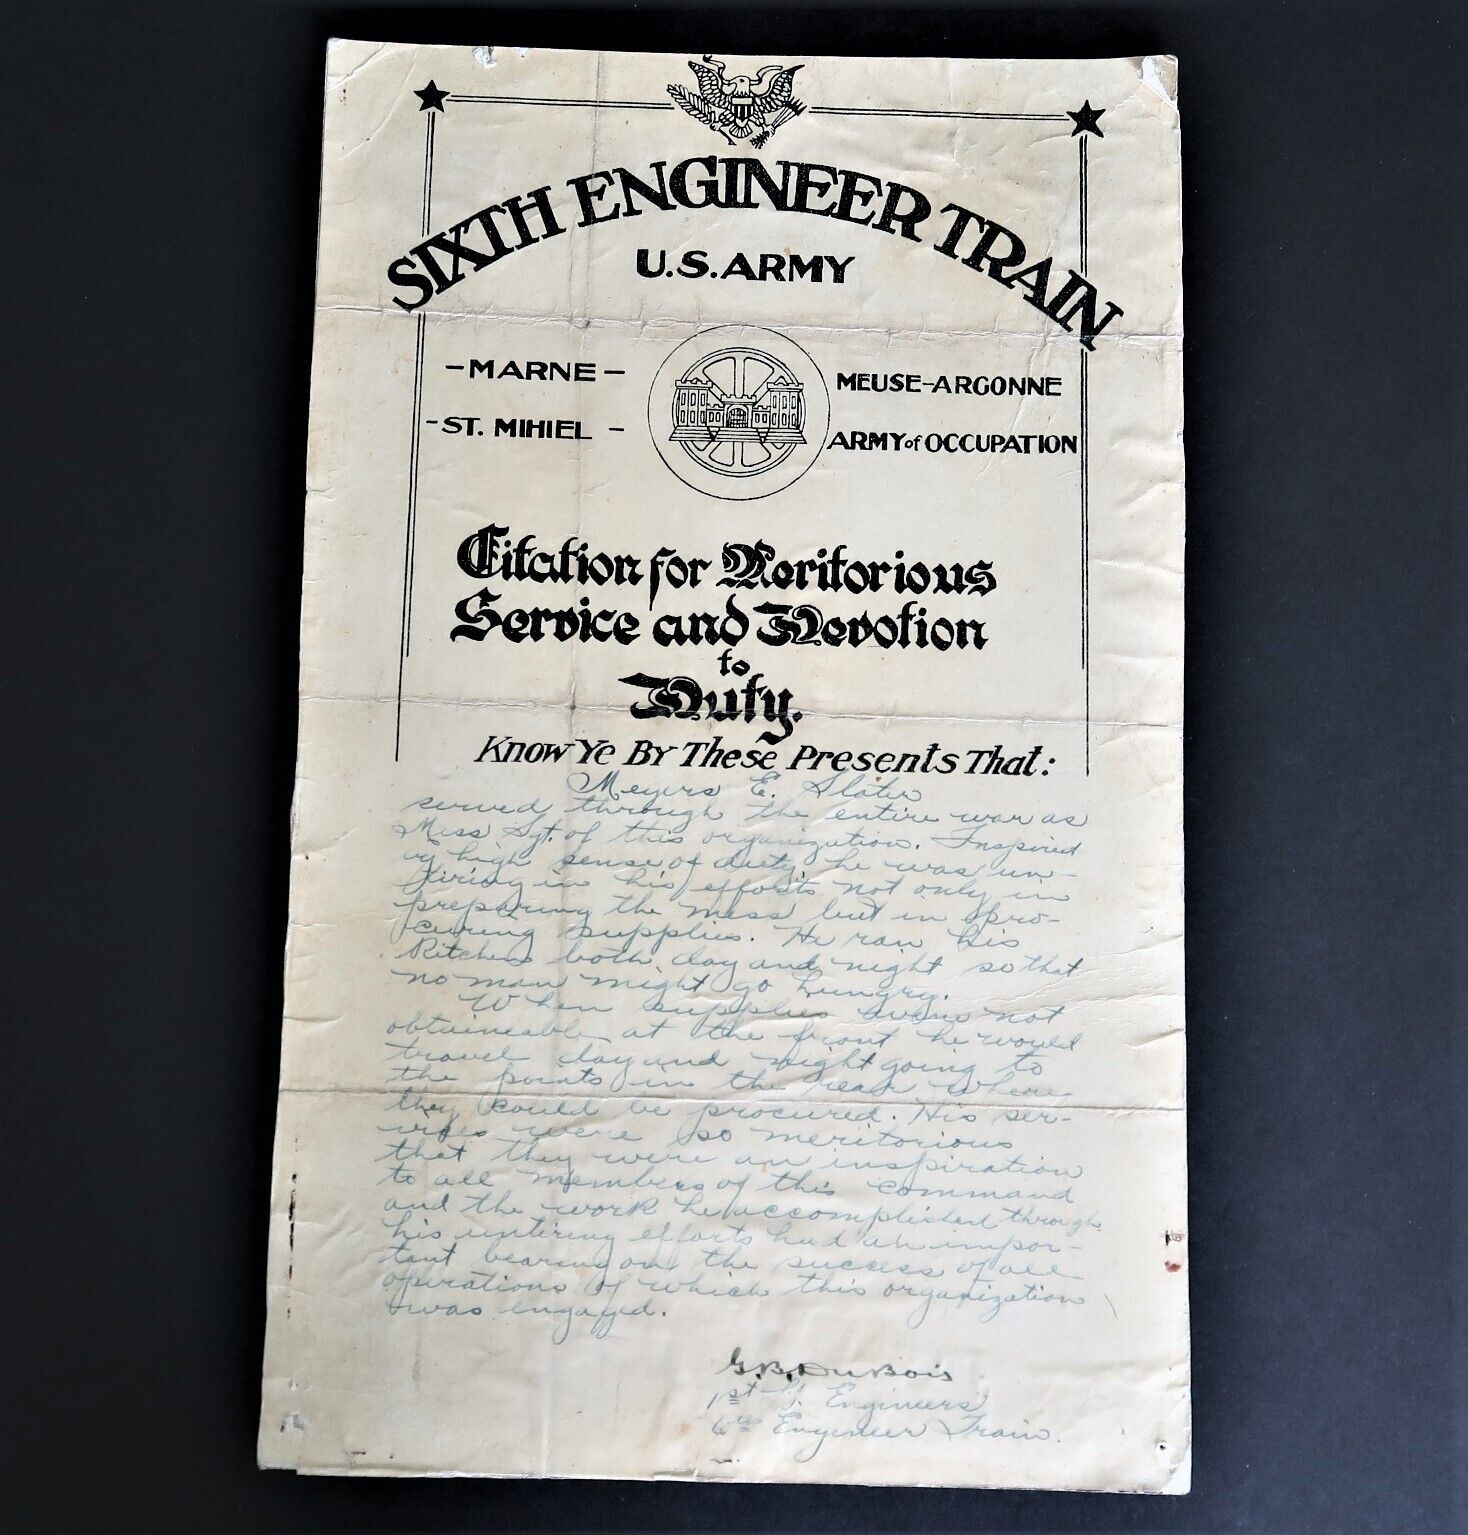 SIXTH ENGINEER TRAIN
U.S. ARMY
- MARNE -
MEUSE-ARGONNE
- ST. MIHIEL -
ARMY of OCCUPATION
Citation for Meritorious
Service and Devotion
to
Duty.
Know Ye By These Presents That:
Meyers E. Slater
served through the entire war as
Mess Sgt. of this organization. Inspired
by high sense of duty, he was un-
tiring in his efforts not only in
preparing the mess but in pro-
curing supplies. He ran his
Kitchens both day and night so that
no man might go hungry.
When supplies were not
obtaineable at the front he would
travel day and night going to
the points in the rear where
they could be procured. His ser-
vices were so meritorious
that they were an inspiration
to all members of this command
and the work he accomplished through
his untiring efforts had an impor-
tant bearing on the success of all
operations of which this organization
was engaged.
G.B. DuBois
1st Lt. Engineers
6th Engineer Train.